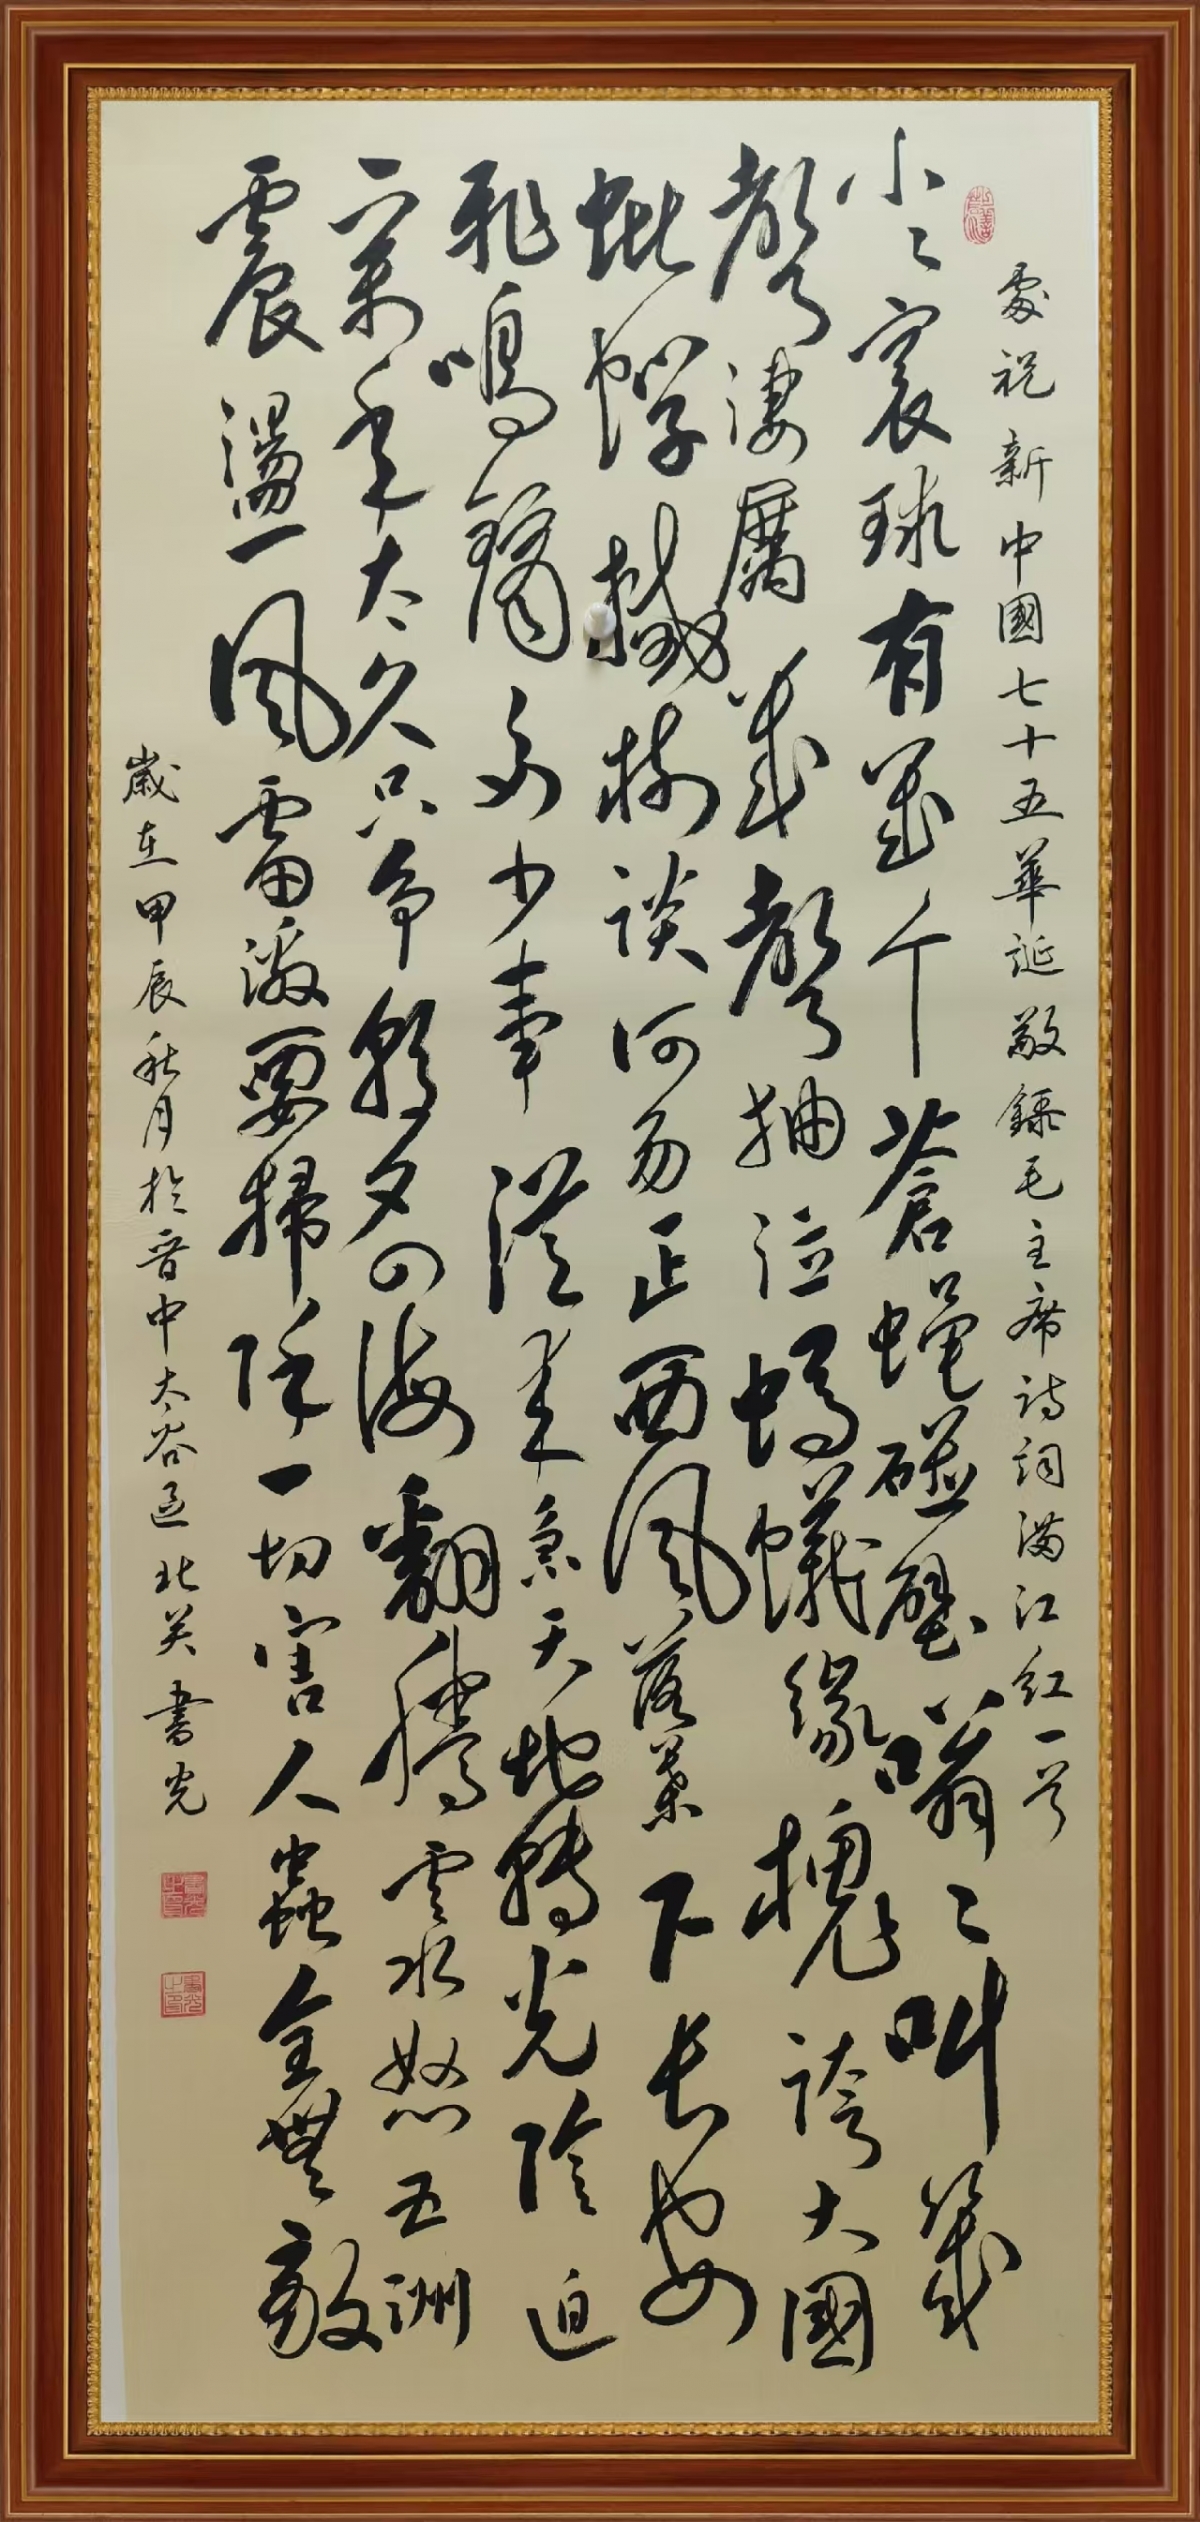 慶祝新中國七十五華誕敬錄毛主席詩詞滿江紅一首
小〻寰球有幾个蒼蠅碰壁嗡〻叫幾
聲淒厲幾聲抽泣螞蟻緣槐誇大國
蚍蜉撼樹談何易正西風落葉下長安
飛鳴鏑多少事從來急天地轉光陰迫
一萬年太久只爭朝夕四海翻騰雲水怒五洲
震盪風雷激要掃除一切害人蟲全無敵
歲在甲辰秋月於晉中太谷區北关書光